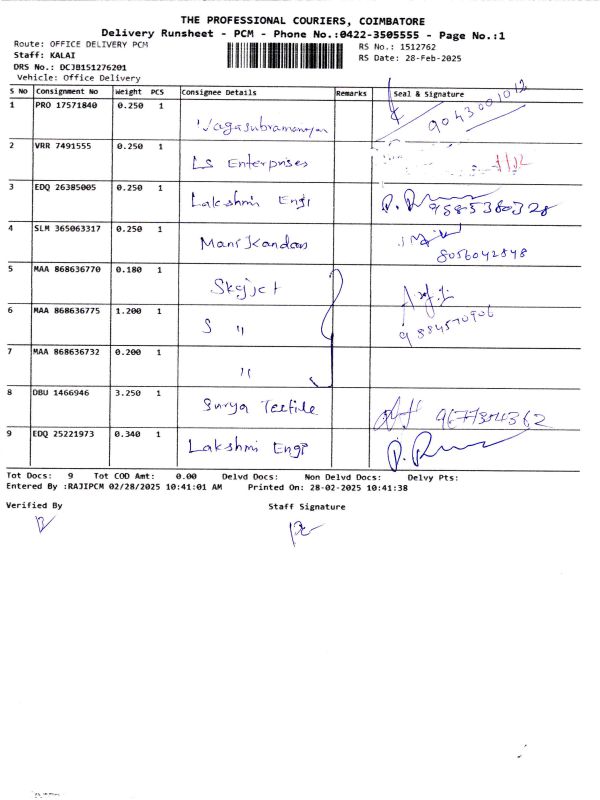 THE PROFESSIONAL COURIERS, COIMBATORE
Delivery Runsheet - PCM - Phone No.:0422-3505555 - Page No.:1
Route: OFFICE DELIVERY PCM
RS No.: 1512762
Staff: KALAI
RS Date: 28-Feb-2025
DRS No.: DCJB151276201
Vehicle: Office Delivery
S No Consignment No Weight PCS Consignee Details Remarks Seal & Signature
1 PRO 17571840 0.250 1 9043001012
2 VRR 7491555 0.250 1 LS Enterprises
3 EDQ 26385005 0.250 1 Lakshmi Engi 9585360328
4 SLM 365063317 0.250 1 Manikandan
8056042848
5 MAA 868636770 0.180 1
6 MAA 868636775 1.200 1 S "
9884570906
7 MAA 868636732 0.200 1 "
8 DBU 1466946 3.250 1 Surya Textile 9677304362
9 EDQ 25221973 0.340 1 Lakshmi Engi
Tot Docs: 9 Tot COD Amt: 0.00 Delvd Docs: Non Delvd Docs: Delvy Pts:
Entered By :RAJIPCM 02/28/2025 10:41:01 AM Printed On: 28-02-2025 10:41:38
Verified By Staff Signature